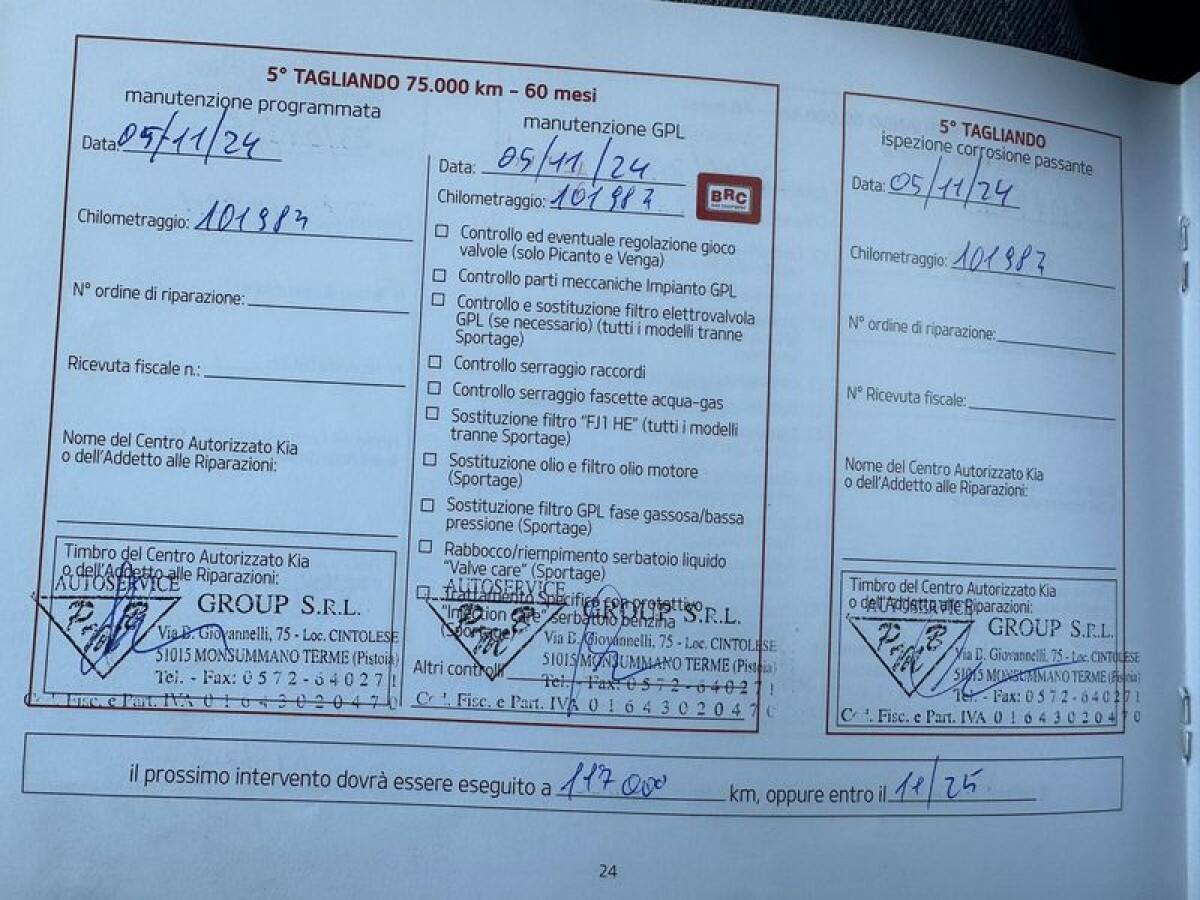 5° TAGLIANDO 75.000 km – 60 mesi
manutenzione programmata
Data: 05/11/24
Chilometraggio: 101987
N° ordine di riparazione:
Ricevuta fiscale n.:
Nome del Centro Autorizzato Kia
o dell'Addetto alle Riparazioni:
Timbro del Centro Autorizzato Kia
o dell'Addetto alle Riparazioni:
AUTOSERVICE
GROUP S.R.L.
Via B. Giovannelli, 75 - Loc. CINTOLESE
51015 MONSUMMANO TERME (Pistoia)
Tel. - Fax: 0572-640271
Cod. Fisc. e Part. IVA 01643020470
manutenzione GPL
Data: 05/11/24
Chilometraggio: 101987
BRC
Controllo ed eventuale regolazione gioco
valvole (solo Picanto e Venga)
Controllo parti meccaniche Impianto GPL
Controllo e sostituzione filtro elettrovalvola
GPL (se necessario) (tutti i modelli tranne
Sportage)
Controllo serraggio raccordi
Controllo serraggio fascette acqua-gas
Sostituzione filtro "FJ1 HE" (tutti i modelli
tranne Sportage)
Sostituzione olio e filtro olio motore
(Sportage)
Sostituzione filtro GPL fase gassosa/bassa
pressione (Sportage)
Rabbocco/riempimento serbatoio liquido
"Valve care" (Sportage)
Trattamento specifico con protettivo
"Injection care" serbatoio benzina
(Sportage)
Altri controlli
AUTOSERVICE
GROUP S.R.L.
Via B. Giovannelli, 75 - Loc. CINTOLESE
51015 MONSUMMANO TERME (Pistoia)
Tel. - Fax: 0572-640271
Cod. Fisc. e Part. IVA 01643020470
5° TAGLIANDO
ispezione corrosione passante
Data: 05/11/24
Chilometraggio: 101987
N° ordine di riparazione:
N° Ricevuta fiscale:
Nome del Centro Autorizzato Kia
o dell'Addetto alle Riparazioni:
Timbro del Centro Autorizzato Kia
o dell'Addetto alle Riparazioni:
AUTOSERVICE
GROUP S.R.L.
Via B. Giovannelli, 75 - Loc. CINTOLESE
51015 MONSUMMANO TERME (Pistoia)
Tel. - Fax: 0572-640271
Cod. Fisc. e Part. IVA 01643020470
il prossimo intervento dovrà essere eseguito a 117000 km, oppure entro il 11/25
24